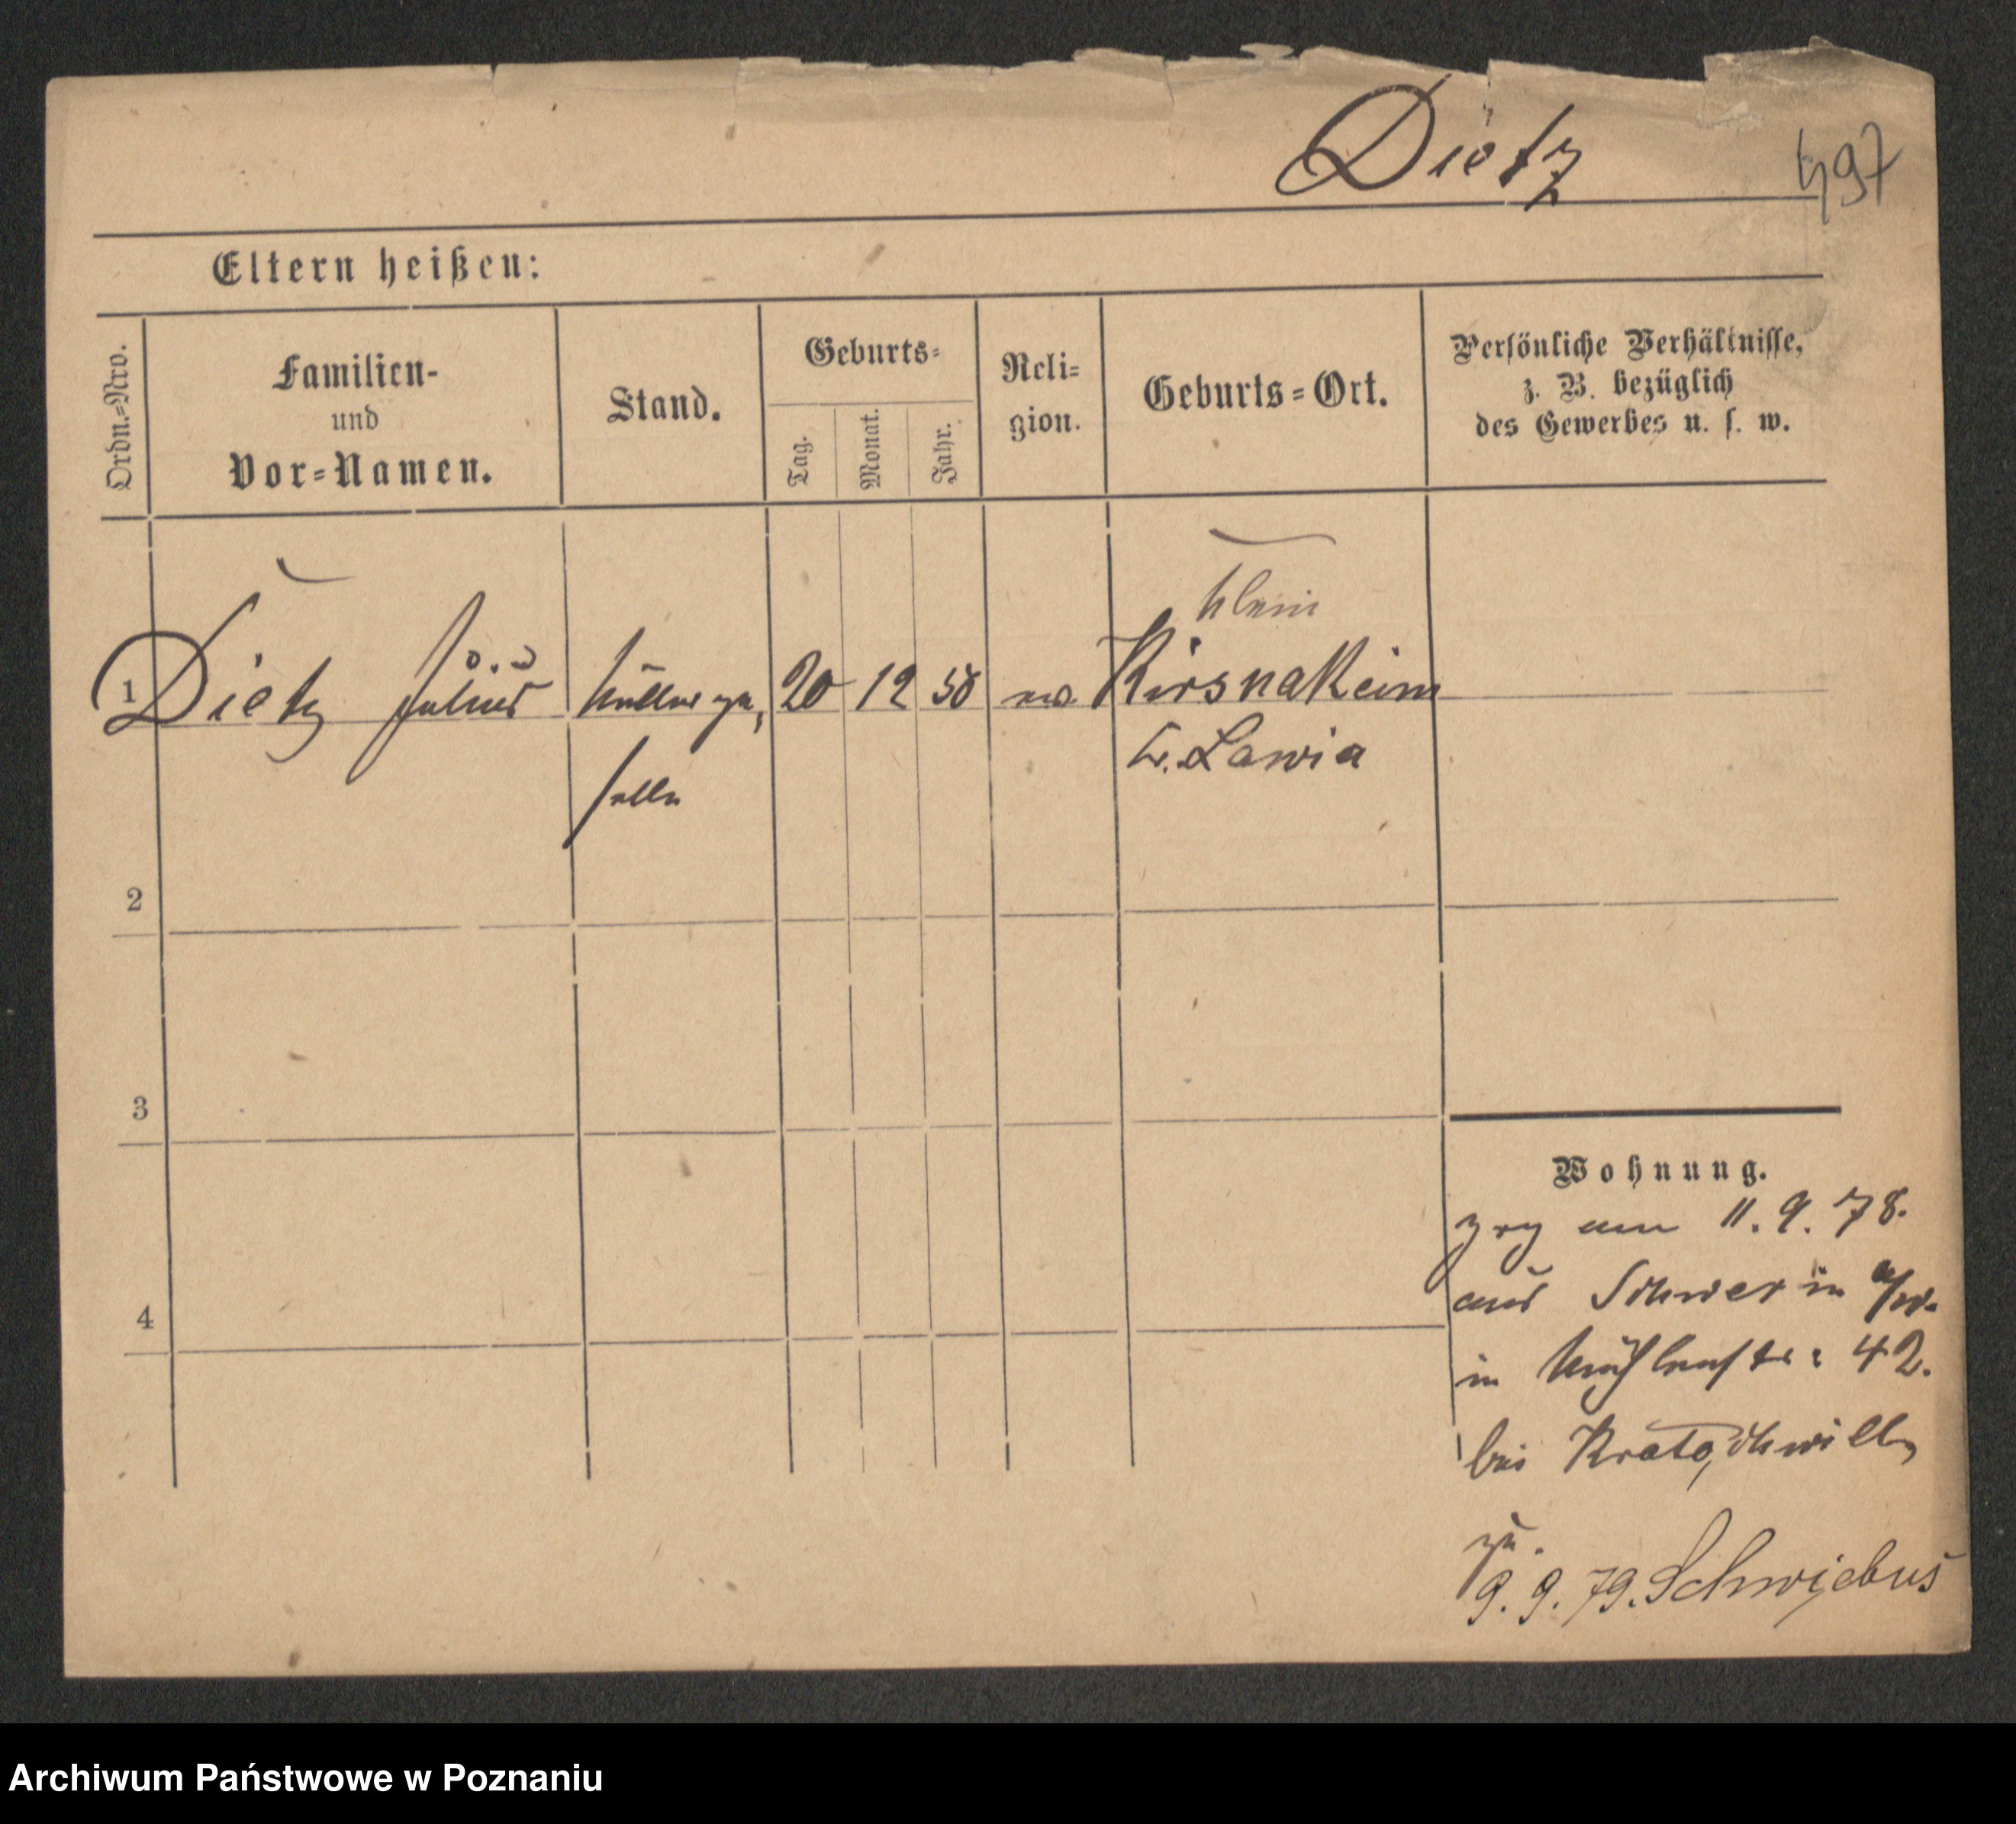 Dietz
497
Eltern heißen:
Ordn.=Nro.
Familien-
und
Vor=Namen.
Stand.
Geburts=
Tag.
Monat.
Jahr.
Reli=
gion.
Geburts=Ort.
Persönliche Verhältnisse,
z. B. bezüglich
des Gewerbes u. s. w.
Klein
1 Dietz Julius Müllerge, 20 12 58 Kirsnakeim
selle
Lawia
2
3
4
Wohnung.
zog am 11. 9. 78.
aus Schwerin a/W.
in Mühlenstr: 42.
bei Kratochwill,
9. 9. 79. Schwiebus
Archiwum Państwowe w Poznaniu